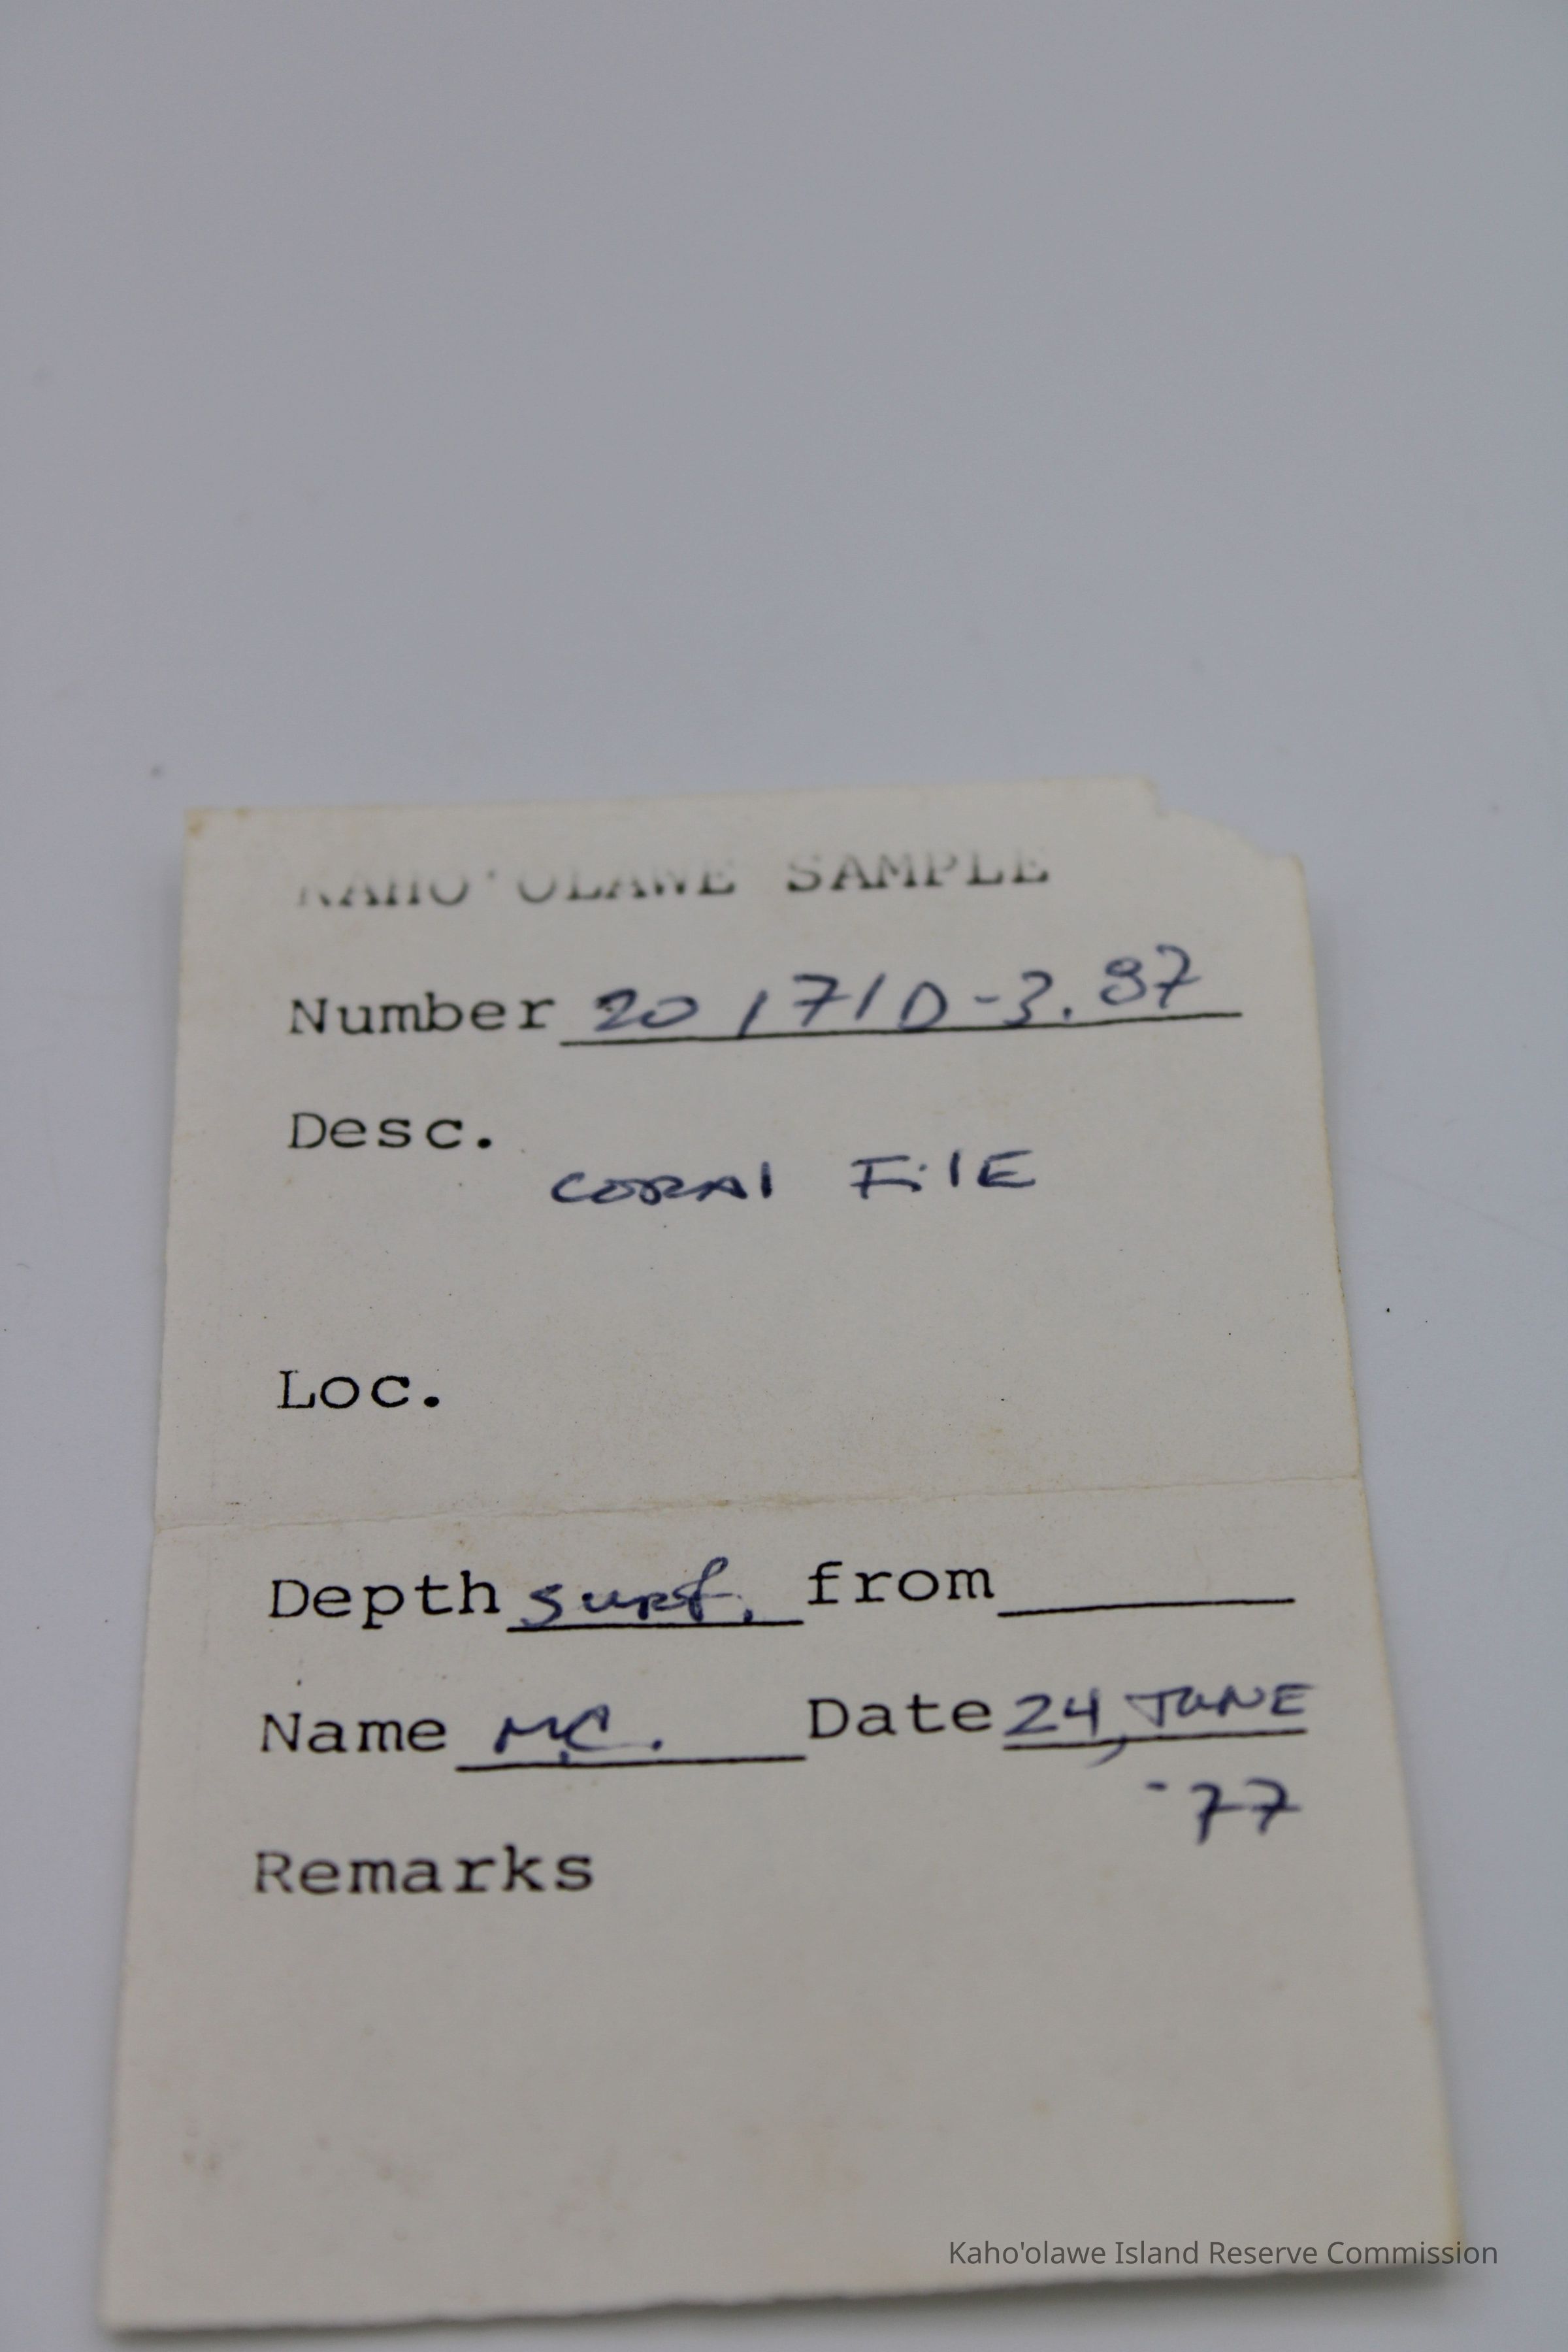 KAHO'OLAWE SAMPLE
Number 20 171D-3.87
Desc.
CORAL FILE
Loc.
Depth surf. from
Name M.C. Date 24, JUNE
-77
Remarks
Kaho'olawe Island Reserve Commission